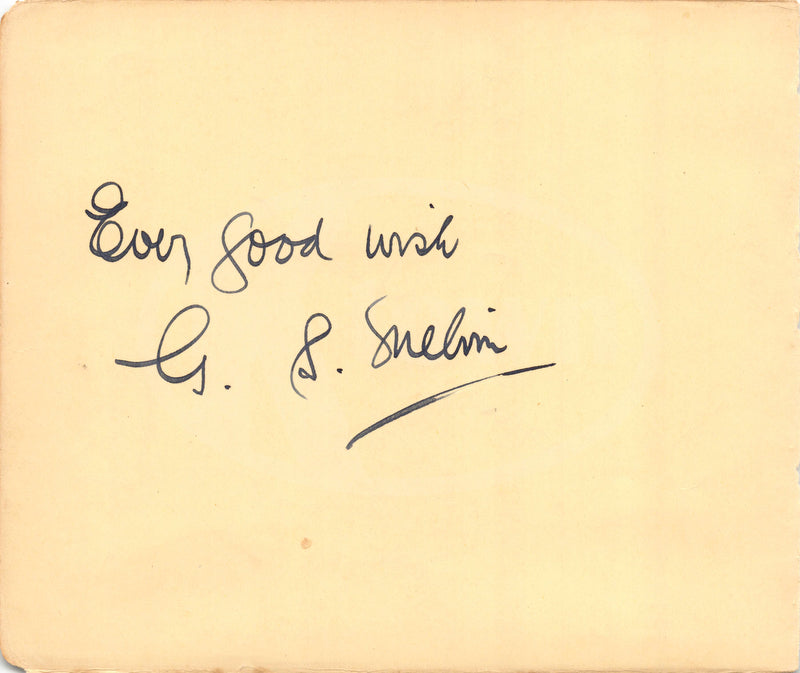 Every good wish
G. S. Melvin